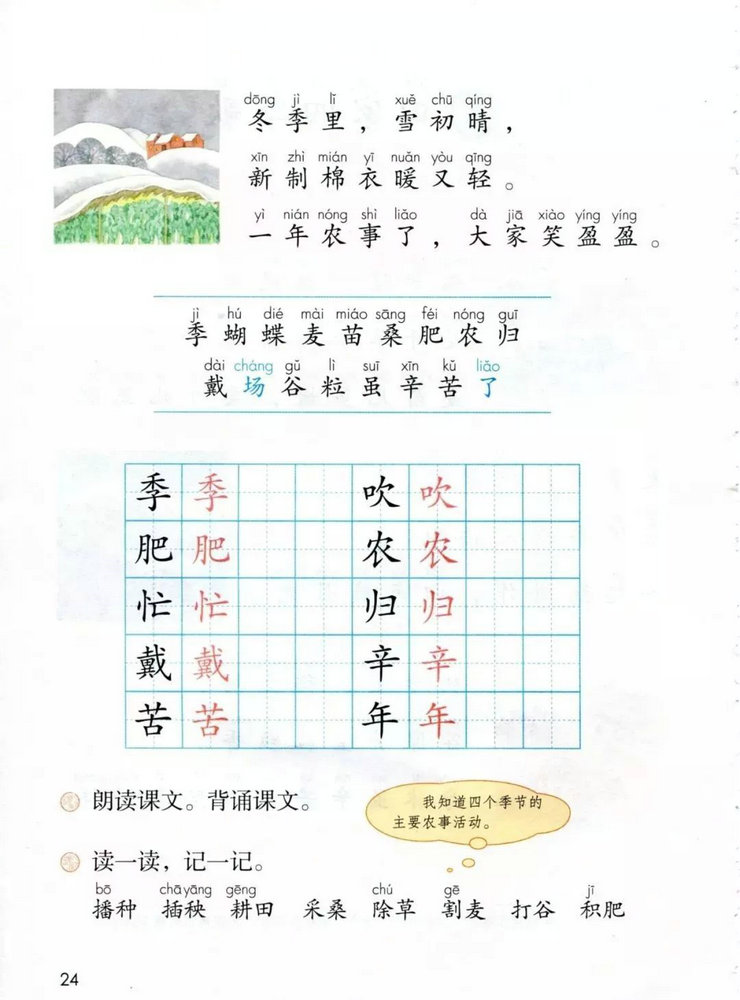 dōng jì lǐ xuě chū qíng
冬季里，雪初晴，
xīn zhì mián yī nuǎn yòu qīng
新制棉衣暖又轻。
yì nián nóng shì liǎo dà jiā xiào yíng yíng
一年农事了，大家笑盈盈。
jì hú dié mài miáo sāng féi nóng guī
季蝴蝶麦苗桑肥农归
dài cháng gǔ lì suī xīn kǔ liǎo
戴场谷粒虽辛苦了
季季吹吹
肥肥农农
忙忙归归
戴戴辛辛
苦苦年年
朗读课文。背诵课文。
我知道四个季节的
主要农事活动。
读一读，记一记。
bō chāyāng gēng chú gē jī
播种 插秧 耕田 采桑 除草 割麦 打谷 积肥
24